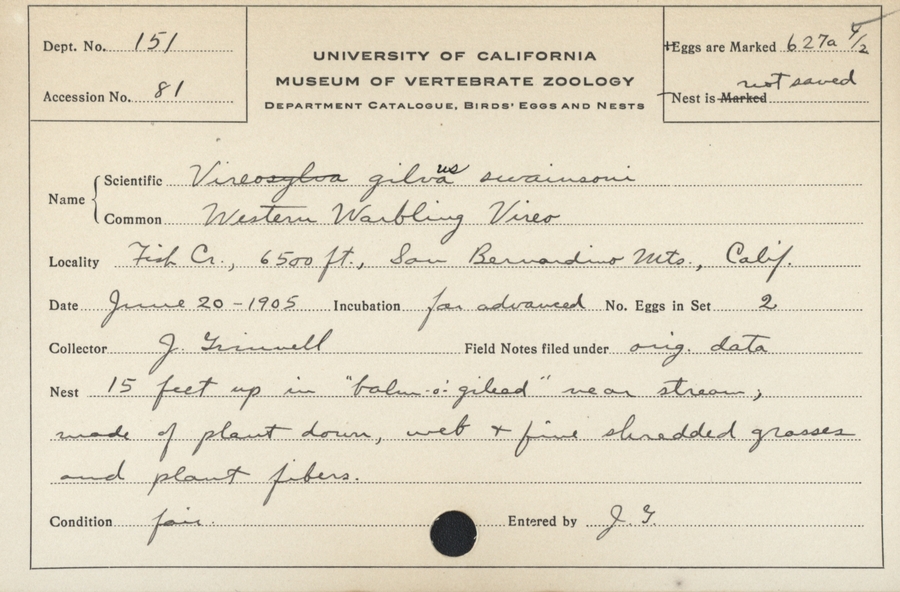 Dept. No. 151
Accession No. 81
UNIVERSITY OF CALIFORNIA
MUSEUM OF VERTEBRATE ZOOLOGY
DEPARTMENT CATALOGUE, BIRDS' EGGS AND NESTS
Eggs are Marked 627a 5/2
not saved
Nest is Marked
Name
Scientific Vireosylva gilva us swainsoni
Common Western Warbling Vireo
Locality Fish Cr., 6500 ft., San Bernardino Mts., Calif.
Date June 20-1905 Incubation far advanced No. Eggs in Set 2
Collector J. Grinnell Field Notes filed under orig. data
Nest 15 feet up in "balm-o'-gilead" near stream;
made of plant down, web + fine shredded grasses
and plant fibers.
Condition fair. Entered by J. G.